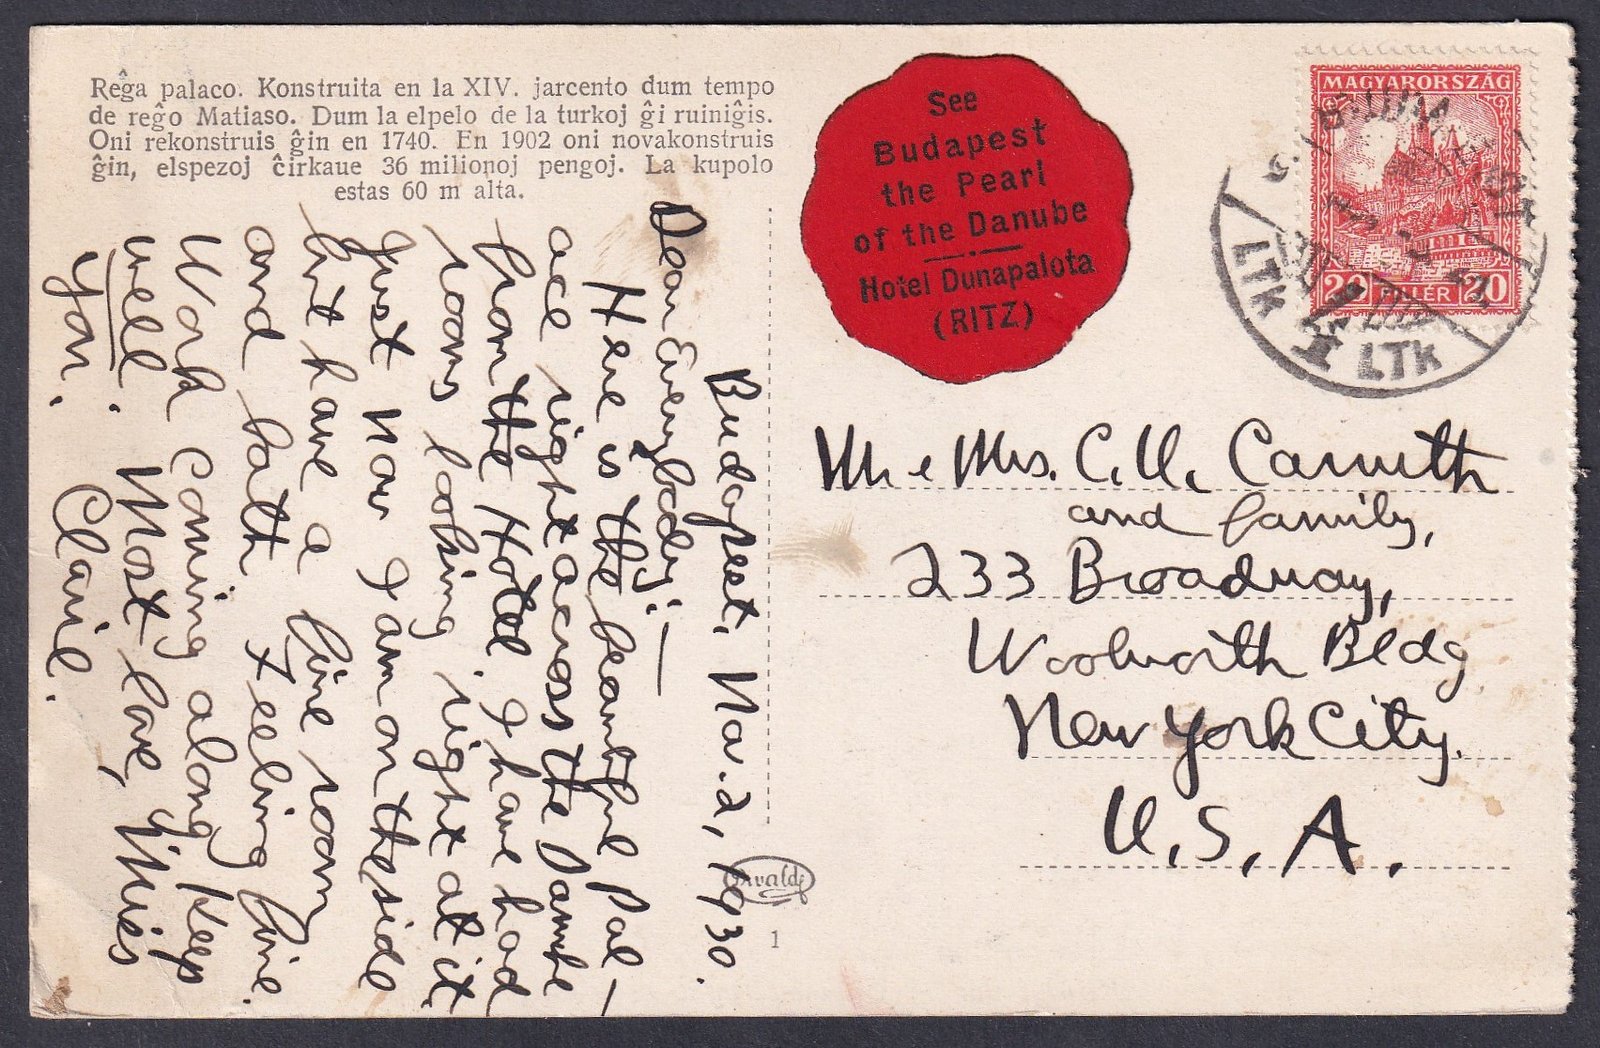 Reĝa palaco. Konstruita en la XIV. jarcento dum tempo
de reĝo Matiaso. Dum la elpelo de la turkoj ĝi ruiniĝis.
Oni rekonstruis ĝin en 1740. En 1902 oni novakonstruis
ĝin, elspezoj ĉirkaue 36 milionoj pengoj. La kupolo
estas 60 m alta.
Budapest, Mar. 2, 1930.
Dear Everybody:—
Here is the beautiful Pal-
ace right across the Danube
from the Hotel. I have had
rooms looking right at it
just now I am on the side
but have a fine room
and bath. Feeling fine.
Work coming along. Keep
well. Most love, Miss
you. Claire.
See
Budapest
the Pearl
of the Danube
Hotel Dunapalota
(RITZ)
MAGYARORSZÁG
20 FILLÉR 20
BUDAPEST
LTK LTK
Mr & Mrs. C. U. Carruth
and family,
233 Broadway,
Woolworth Bldg
New York City.
U. S. A.
1